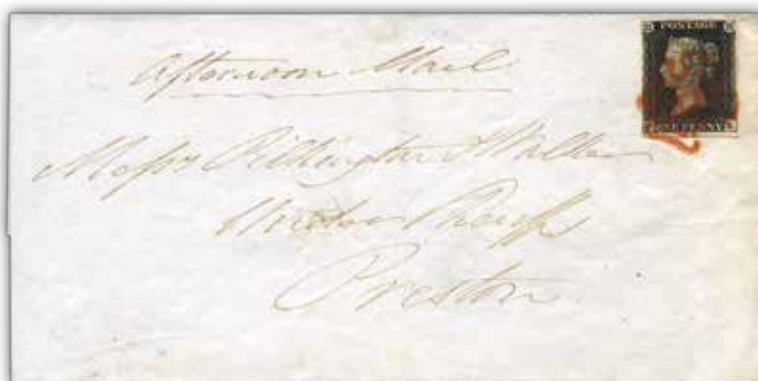 POSTAGE
ONE PENNY
Afternoon Mail
Messrs Pilkington & Walker
Preston